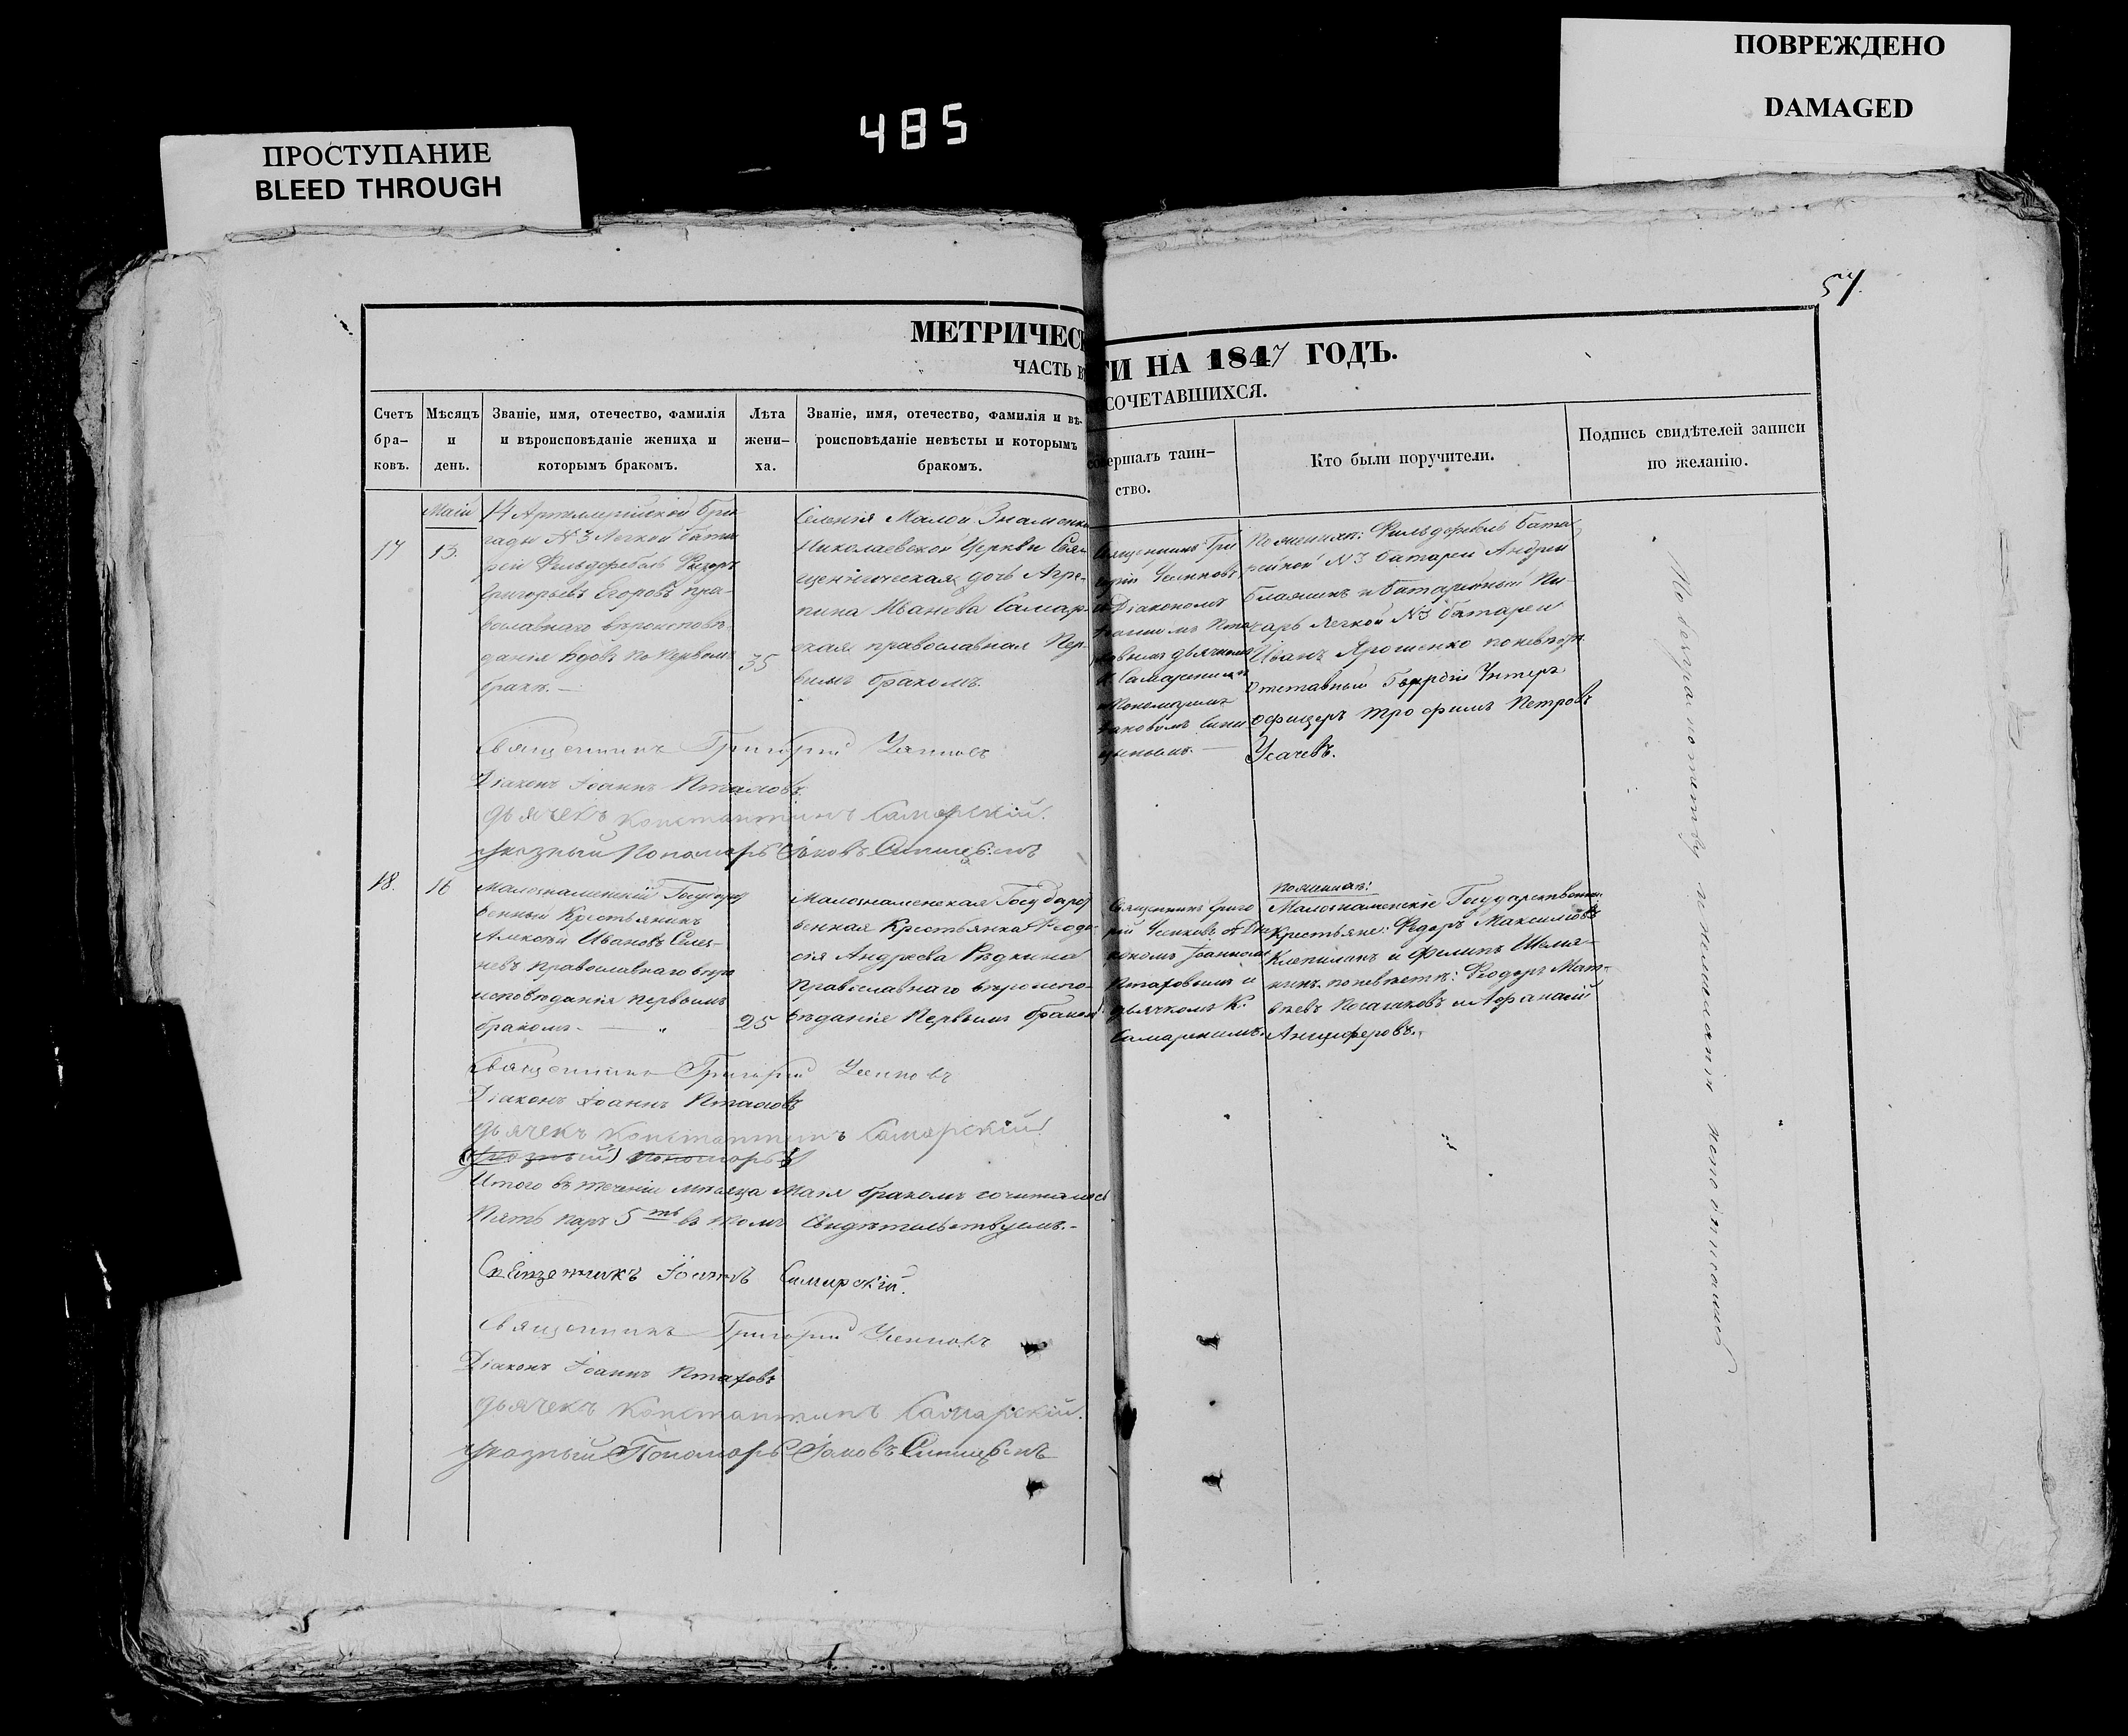 ПОВРЕЖДЕНО
DAMAGED
485
ПРОСТУПАНИЕ
BLEED THROUGH
57.
МЕТРИЧЕС
ТИ НА 1847 ГОДЪ.
ЧАСТЬ В
СОЧЕТАВШИХСЯ.
Счетъ бра-
ковъ.
Мѣсяцъ
и
день.
Званіе, имя, отечество, фамилія
и вѣроисповѣданіе жениха и
которымъ бракомъ.
Лѣта
жени-
ха.
Званіе, имя, отечество, фамилія и вѣ-
роисповѣданіе невѣсты и которымъ
бракомъ.
совершалъ таин-
ство.
Кто были поручители.
Подпись свидѣтелей записи
по желанію.
17
Маій
13.
14 Артиллерійской бри
гады №3 Легкой бата
реи Фельдфебель Федоръ
Григорьевъ Егоровъ пра-
вославнаго вѣроисповѣ-
данія вдовъ по первомъ
бракѣ.—
35
Селенія Малой Знаменки
Николаевской Церкви Свя-
щенническая дочь Агре-
пина Иванова Самар-
ская православная Пер-
вымъ бракомъ.
Священникъ Гри
горій Усенковъ
съ Діакономъ
дьячкомъ
К. Самарским
Пономаремъ
По женихѣ: Фельдфебель бата
рейной №3 батареи Андрей
и батарейный Пи-
сарь Легкой №3 батареи
Иванъ Ярошенко по невѣстѣ
Отставный Унтеръ
Офицеръ Трофимъ Петровъ
Усачевъ.
Священникъ Григорій Усенковъ
Діаконъ Іоаннъ Птаховъ
дьячекъ Константинъ Самарскій.
Указный Пономарь Іаковъ
18.
16
Малознаменскій Государст
венный Крестьянинъ
Алексѣй Ивановъ Селез-
невъ православнаго вѣро
исповѣданія первымъ
бракомъ.—
25
Малознаменская Государст
венная Крестьянка Феодо
сія Андреева Рѣдкина
Православнаго вѣроиспо-
вѣданія Первымъ бракомъ
Священникъ Григо
рій Усенковъ съ Діа
кономъ Іоанномъ
Птаховымъ и
дьячкомъ К.
Самарскимъ.
По женихѣ:
Малознаменскіе Государственны
Крестьяне: Федоръ Максимовъ
и Филипъ Шемя-
кинъ. по невѣстѣ: Феодоръ Мат-
вѣевъ и Афанасій
Анциферовъ.
Священникъ Григорій Усенковъ
Діаконъ Іоаннъ Птаховъ
дьячекъ Константинъ Самарскій
Указный Пономарь
Итого въ теченіи мѣсяца Маія бракомъ сочитались
Пять паръ 5ть въ томъ Свидѣтельствуемъ.—
Священникъ Іоаннъ Самарскій.
Священникъ Григорій Усенковъ
Діаконъ Іоаннъ Птаховъ
дьячекъ Константинъ Самарскій.
Указный Пономарь Іаковъ